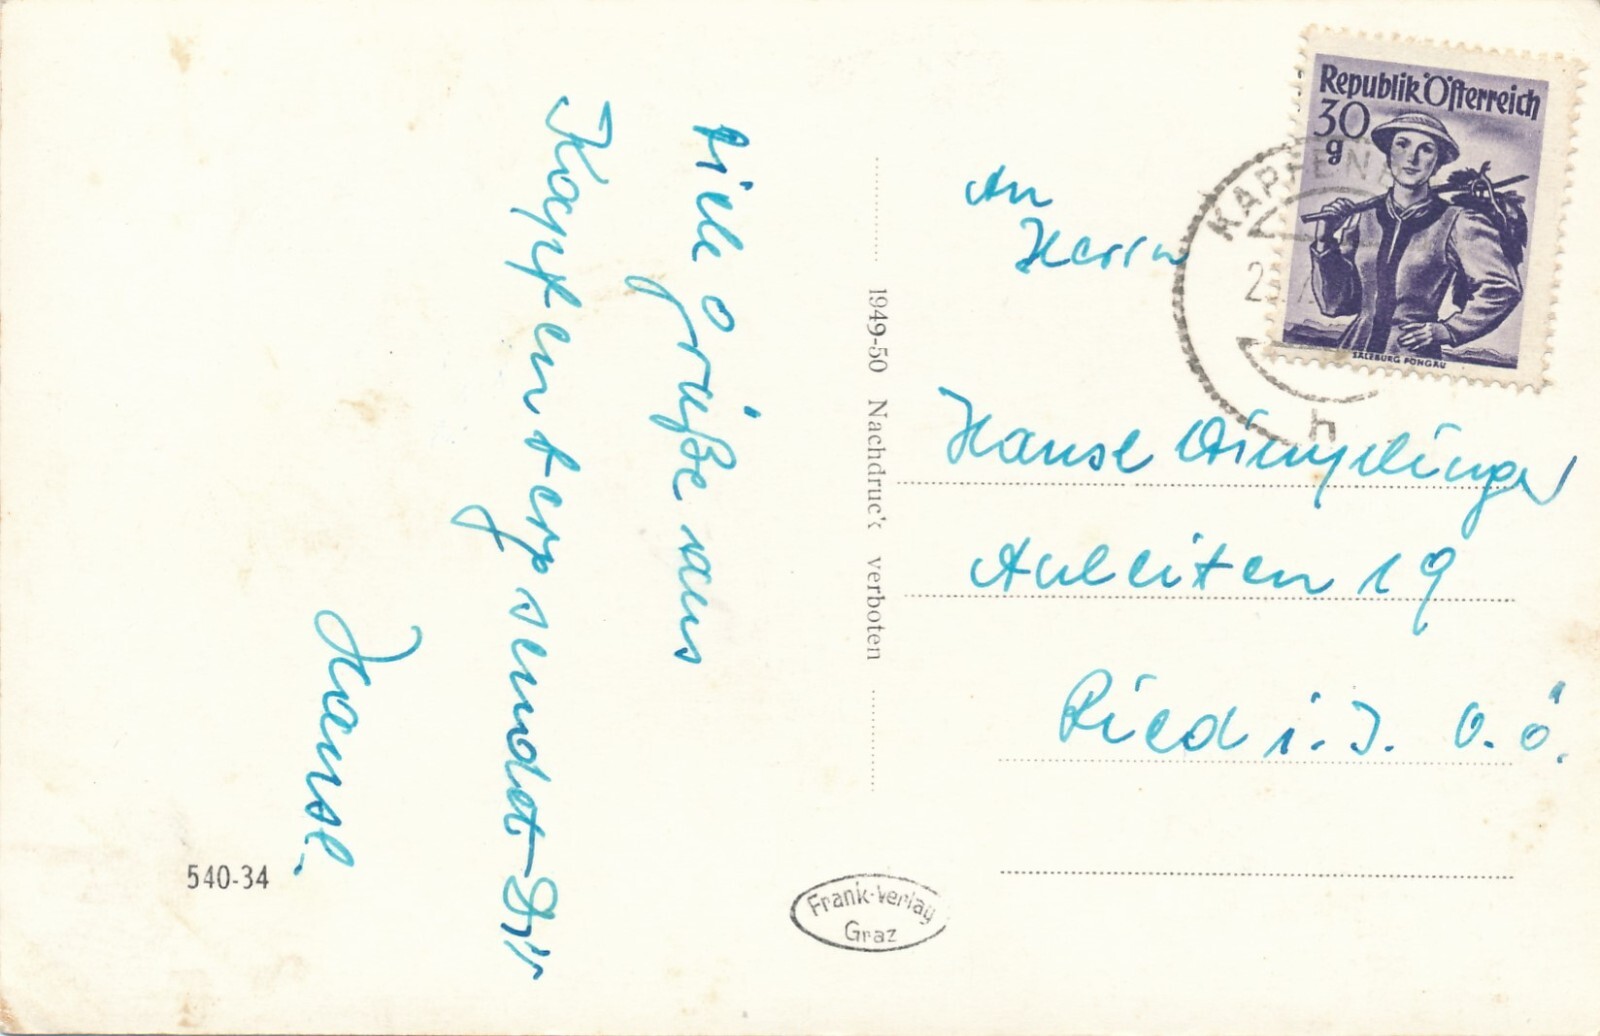 Viele Grüße aus
Kapfenberg sendet Dir
Hansl.
540-34
1949-50 Nachdruck verboten
Frank-Verlag
Graz
Republik Österreich
30
g
SALZBURG PONGAU
KAPFEN
h
An
Herrn
Hansl
Auleiten 19
Ried i. I. O.Ö.